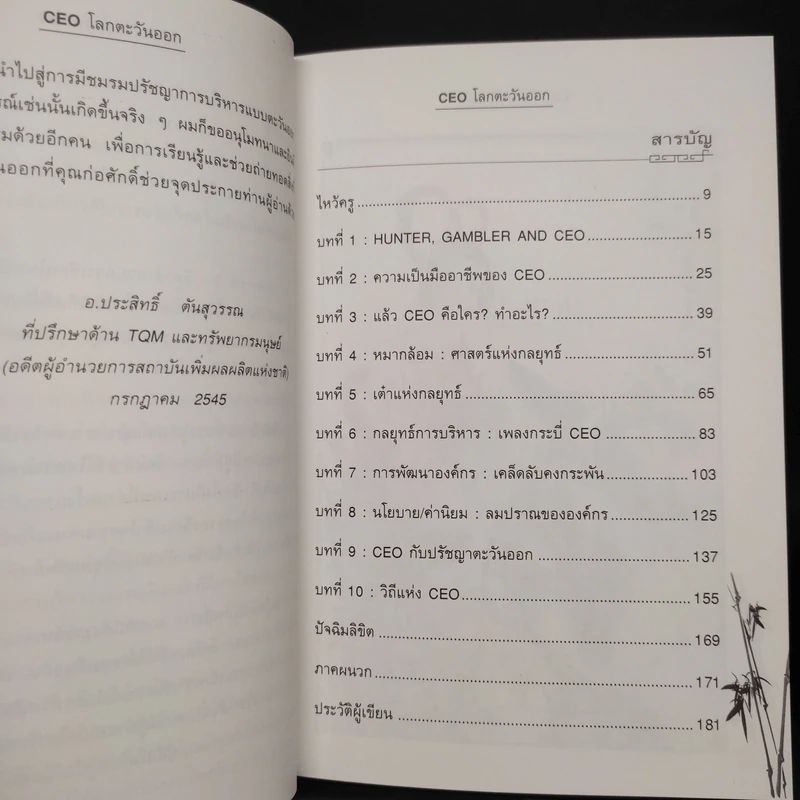 CEO โลกตะวันออก
นำไปสู่การมีชมรมปรัชญาการบริหารแบบตะวันออก
รณ์เช่นนั้นเกิดขึ้นจริง ๆ ผมก็ขออนุโมทนาและ
มด้วยอีกคน เพื่อการเรียนรู้และช่วยถ่ายทอด
นออกที่คุณก่อศักดิ์ช่วยจุดประกายท่านผู้อ่าน
อ.ประสิทธิ์ ตันสุวรรณ
ที่ปรึกษาด้าน TQM และทรัพยากรมนุษย์
(อดีตผู้อำนวยการสถาบันเพิ่มผลผลิตแห่งชาติ)
กรกฎาคม 2545
CEO โลกตะวันออก
สารบัญ
ไหว้ครู 9
บทที่ 1 : HUNTER, GAMBLER AND CEO 15
บทที่ 2 : ความเป็นมืออาชีพของ CEO 25
บทที่ 3 : แล้ว CEO คือใคร? ทำอะไร? 39
บทที่ 4 : หมากล้อม : ศาสตร์แห่งกลยุทธ์ 51
บทที่ 5 : เต๋าแห่งกลยุทธ์ 65
บทที่ 6 : กลยุทธ์การบริหาร : เพลงกระบี่ CEO 83
บทที่ 7 : การพัฒนาองค์กร : เคล็ดลับคงกระพัน 103
บทที่ 8 : นโยบาย/ค่านิยม : ลมปราณขององค์กร 125
บทที่ 9 : CEO กับปรัชญาตะวันออก 137
บทที่ 10 : วิถีแห่ง CEO 155
ปัจฉิมลิขิต 169
ภาคผนวก 171
ประวัติผู้เขียน 181